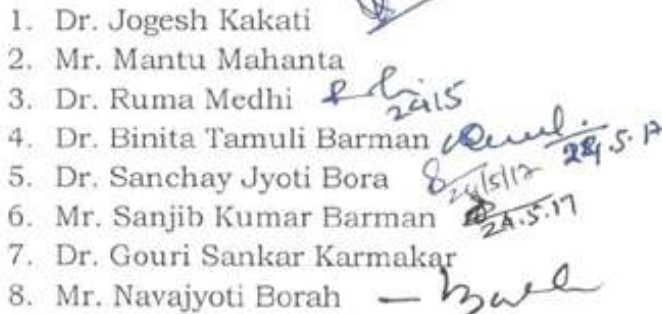 1. Dr. Jogesh Kakati
2. Mr. Mantu Mahanta
3. Dr. Ruma Medhi 24/5
4. Dr. Binita Tamuli Barman 24.5.17
5. Dr. Sanchay Jyoti Bora 24/5/17
6. Mr. Sanjib Kumar Barman 24.5.17
7. Dr. Gouri Sankar Karmakar
8. Mr. Navajyoti Borah —